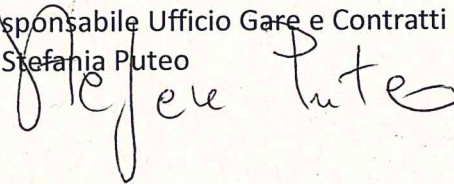 sponsabile Ufficio Gare e Contratti
Stefania Puteo
Puteo